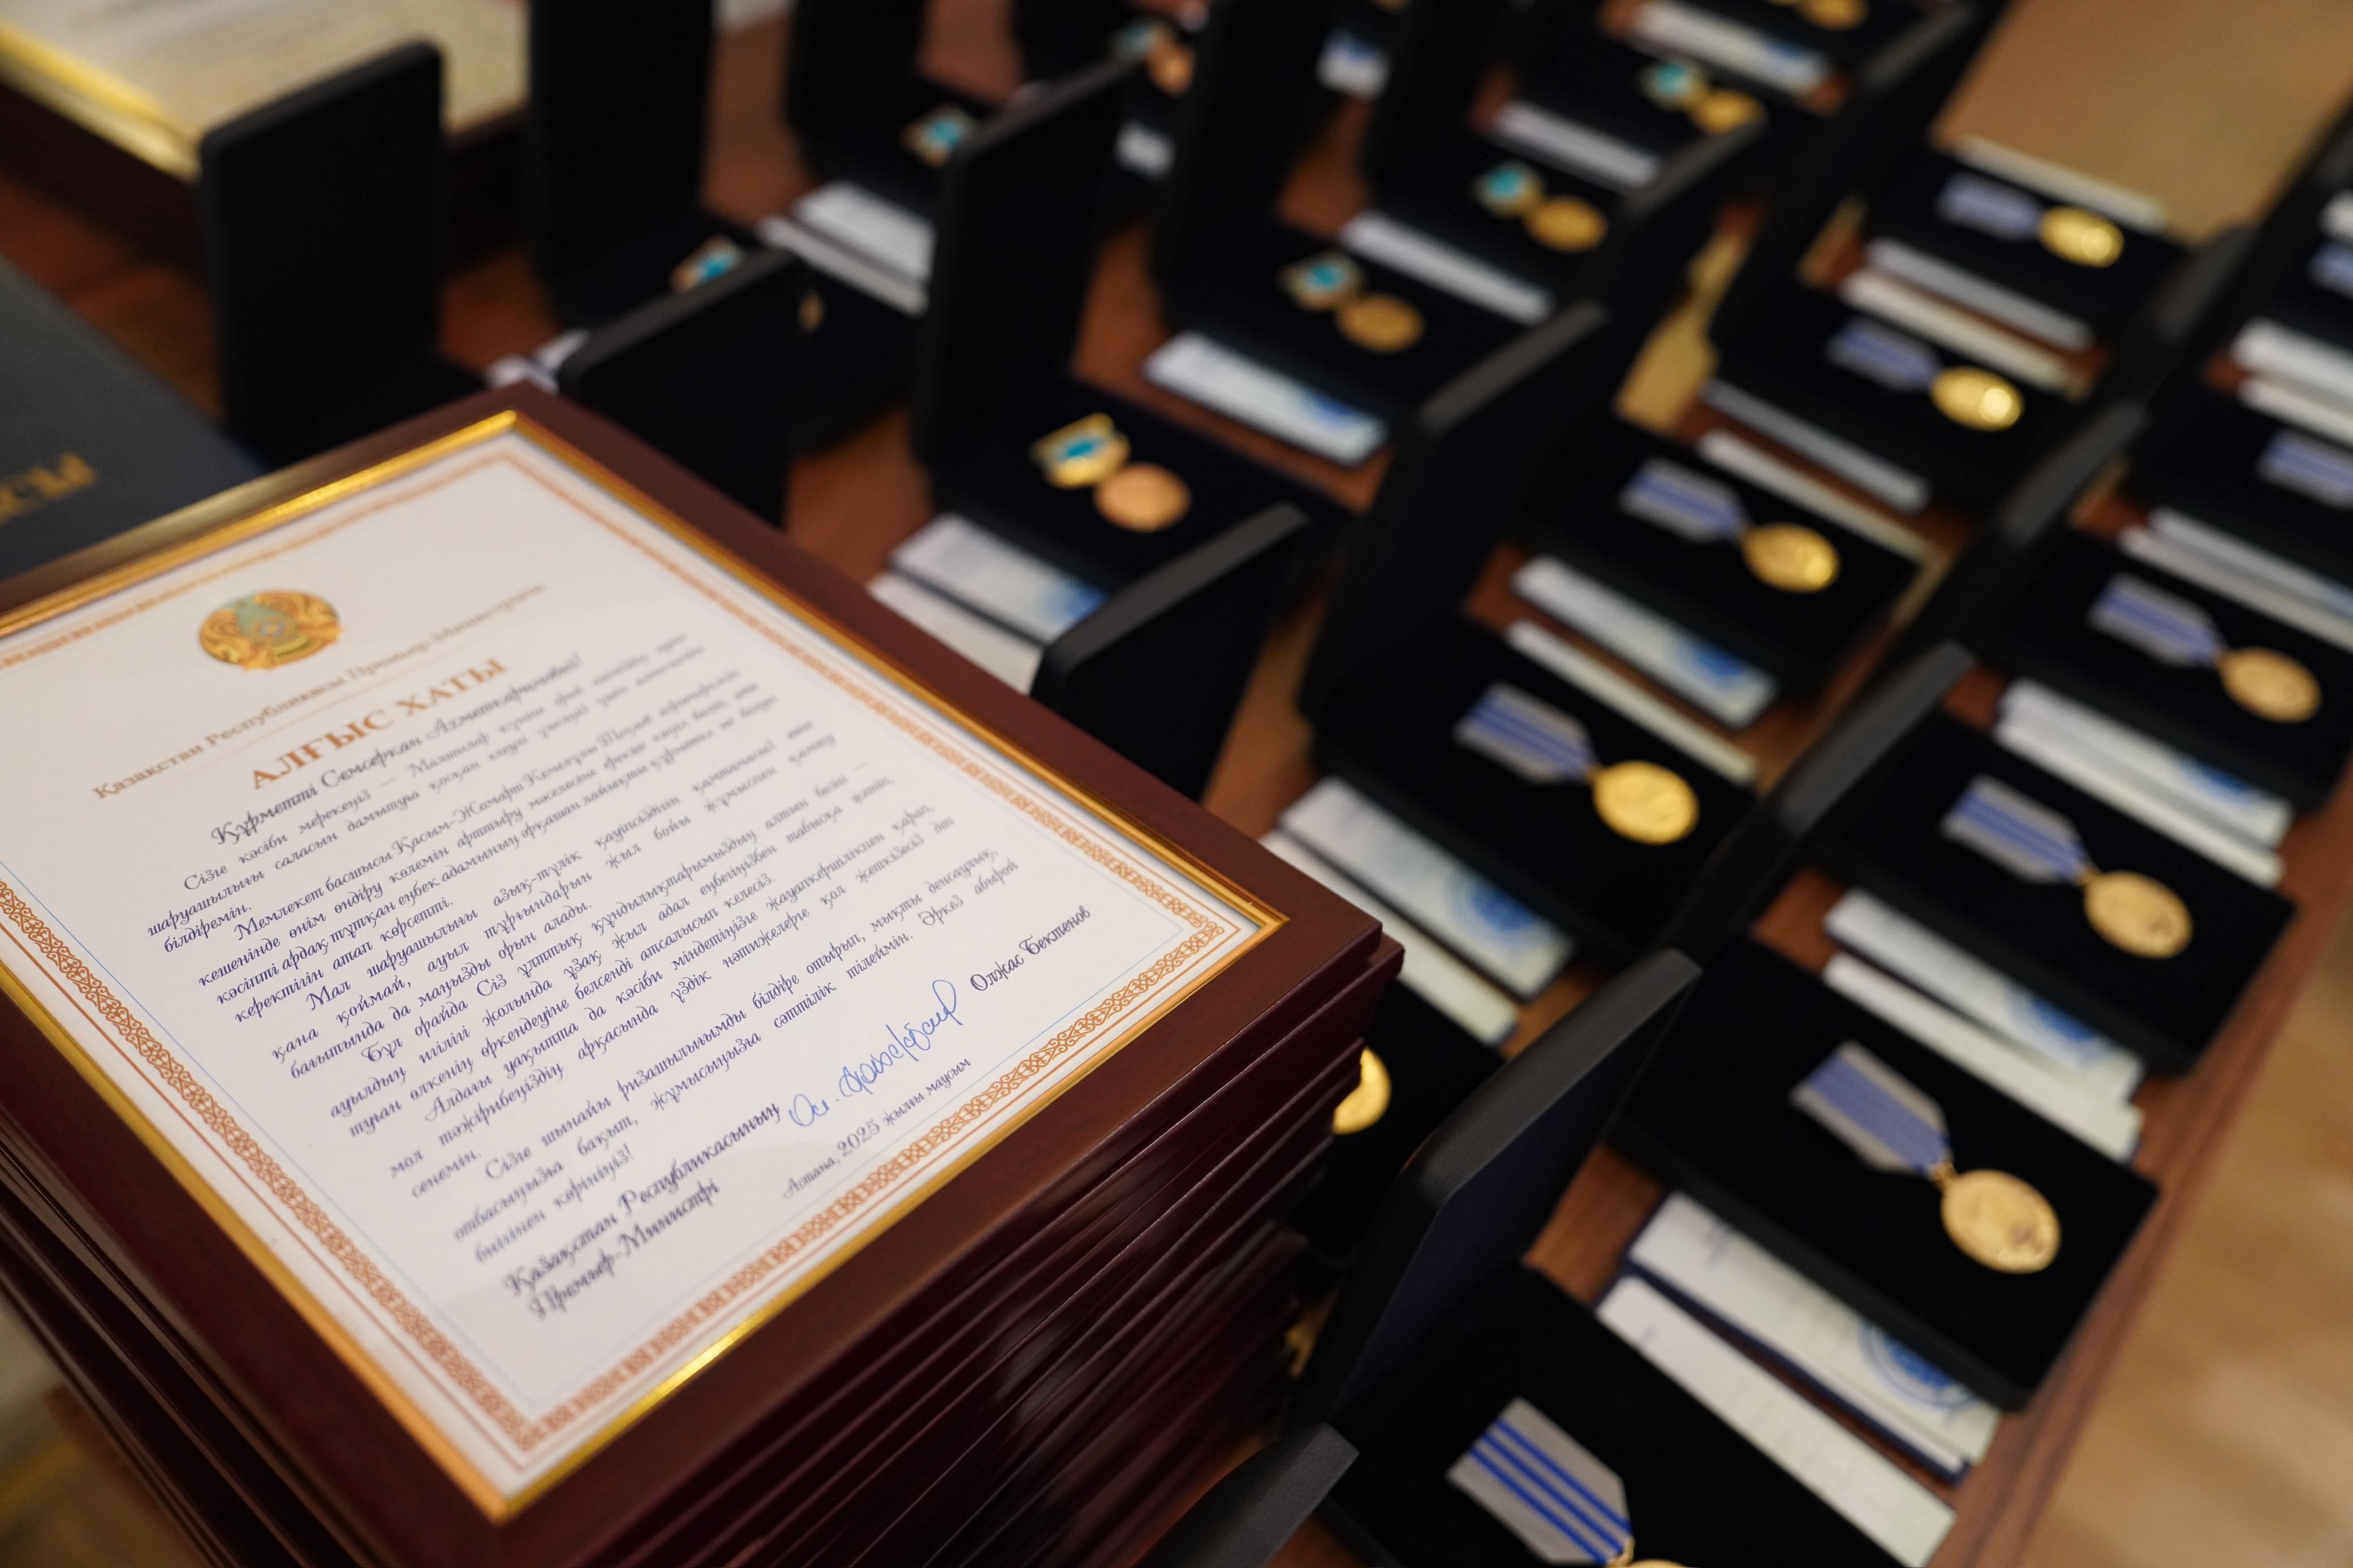 Қазақстан Республикасы Премьер-Министрінің
АЛҒЫС ХАТЫ
Құрметті Семсерхан Ахметкәрімовиі!
Сізге кәсіби мерекеңіз — Малшылар күніне орай
шаруашылығы саласын дамытуға қосқан елеулі үлесіңіз үшін алғысымды
білдіремін.
Мемлекет басшысы Қасым-Жомарт Кемелұлы Тоқаев
кешенінде өнім өндіру көлемін арттыру мәселесіне ерекше көңіл бөліп,
кәсіпті ардақ тұтқан еңбек адамының әрқашан лайықты құрметке ие болуы
керектігін атап көрсетті.
Мал шаруашылығы азық-түлік қауіпсіздігін қамтамасыз етіп
қана қоймай, ауыл тұрғындарын жыл бойы жұмыспен қамту
бағытында да маңызды орын алады.
Бұл орайда Сіз ұлттық құндылықтарымыздың алтын бесігі –
ауылдың игілігі жолында ұзақ жыл адал еңбегіңізбен табысқа жетіп,
туған өлкенің өркендеуіне белсенді атсалысып келесіз.
Алдағы уақытта да кәсіби міндетіңізге жауапкершілікпен қарап,
мол тәжірибеңіздің арқасында үздік нәтижелерге қол жеткізесіз деп
сенемін.
Сізге шынайы ризашылығымды білдіре отырып, мықты денсаулық,
отбасыңызға бақыт, жұмысыңызға сәттілік тілеймін. Әркез абырой
биігінен көрініңіз!
Қазақстан Республикасының
Премьер-Министрі
Олжас Бектенов
Астана, 2025 жылғы маусым